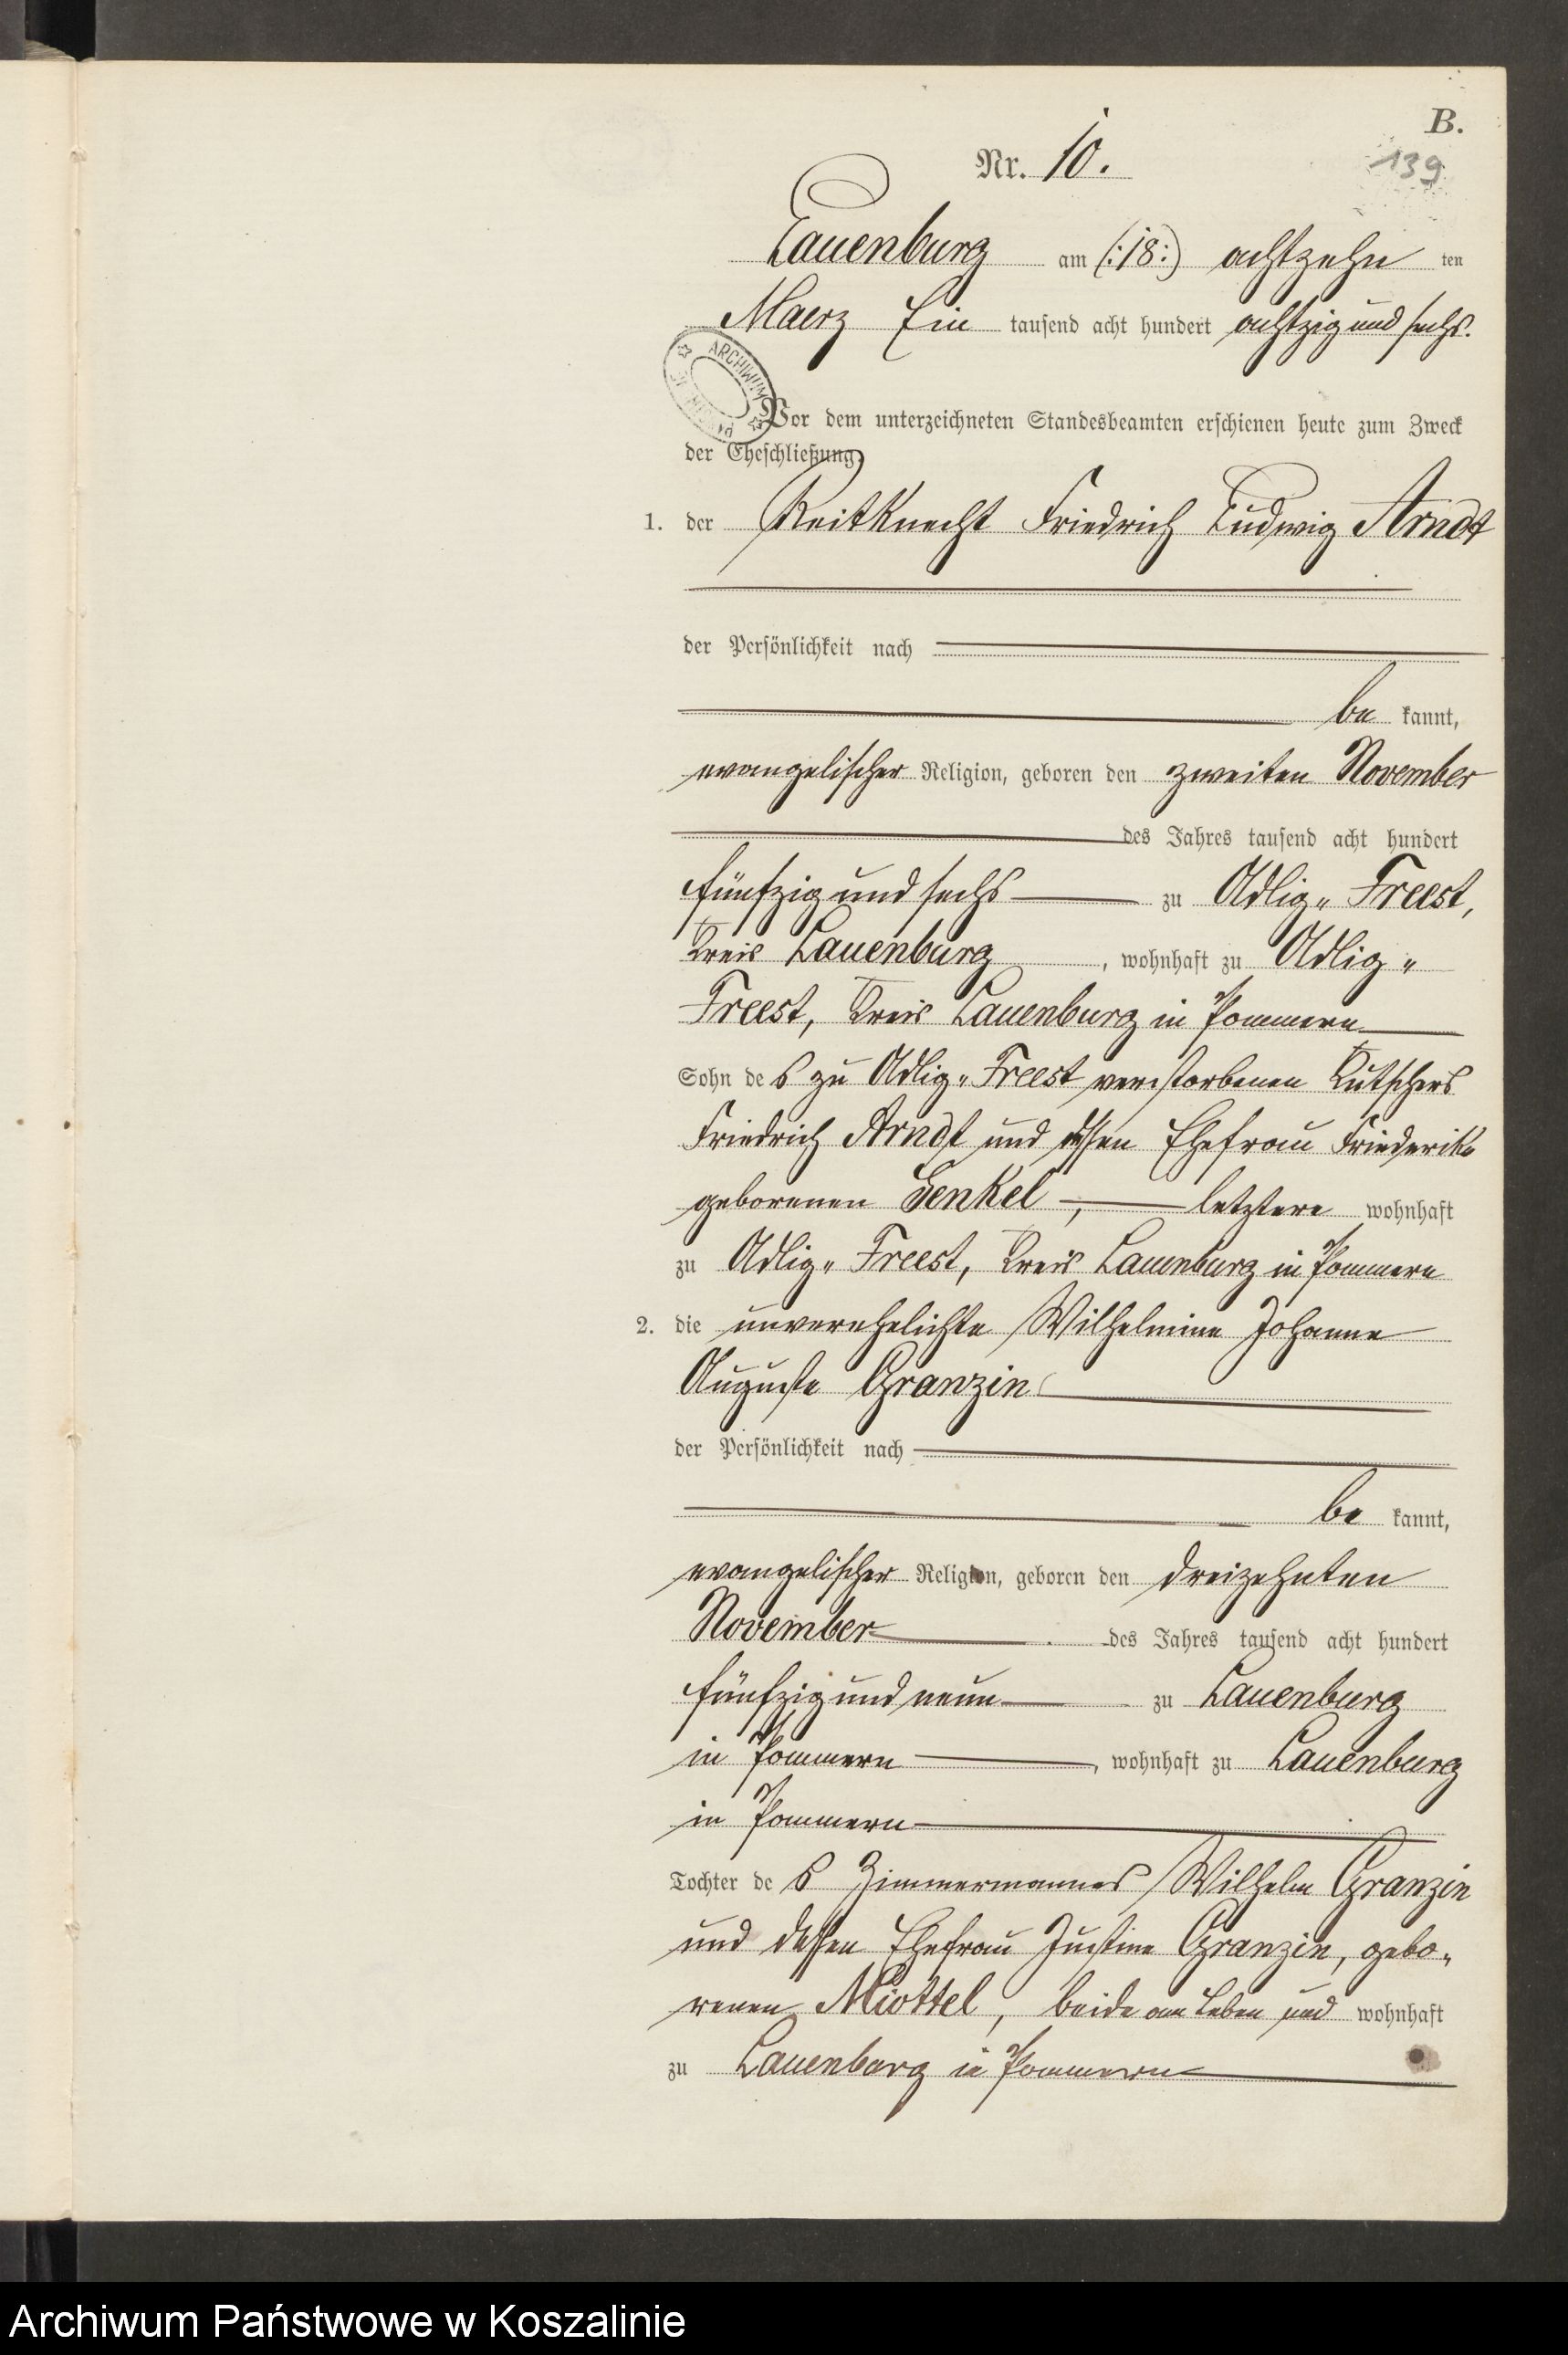 B.
Nr. 10.
139
Lauenburg am (:18:) achtzehn ten
Maerz Ein tausend acht hundert achtzig und sechs.
ARCHIWUM
Vor dem unterzeichneten Standesbeamten erschienen heute zum Zweck
der Eheschließung:
1. der Reitknecht Friedrich Ludwig Arndt
der Persönlichkeit nach
be kannt,
evangelischer Religion, geboren den zweiten November
des Jahres tausend acht hundert
fünfzig und sechs zu Adlig„ Freest,
Kreis Lauenburg, wohnhaft zu Adlig„
Freest, Kreis Lauenburg in Pommern
Sohn des zu Adlig„ Freest verstorbenen Kutschers
Friedrich Arndt und dessen Ehefrau Friederike
geborenen Henkel, letztere wohnhaft
zu Adlig„ Freest, Kreis Lauenburg in Pommern
2. die unverehelichte Wilhelmine Johanne
Auguste Granzin
der Persönlichkeit nach
be kannt,
evangelischer Religion, geboren den dreizehnten
November des Jahres tausend acht hundert
fünfzig und neun zu Lauenburg
in Pommern, wohnhaft zu Lauenburg
in Pommern
Tochter des Zimmermannes Wilhelm Granzin
und dessen Ehefrau Justine Granzin, gebo„
renen Miottel, beide am Leben und wohnhaft
zu Lauenburg in Pommern
Archiwum Państwowe w Koszalinie